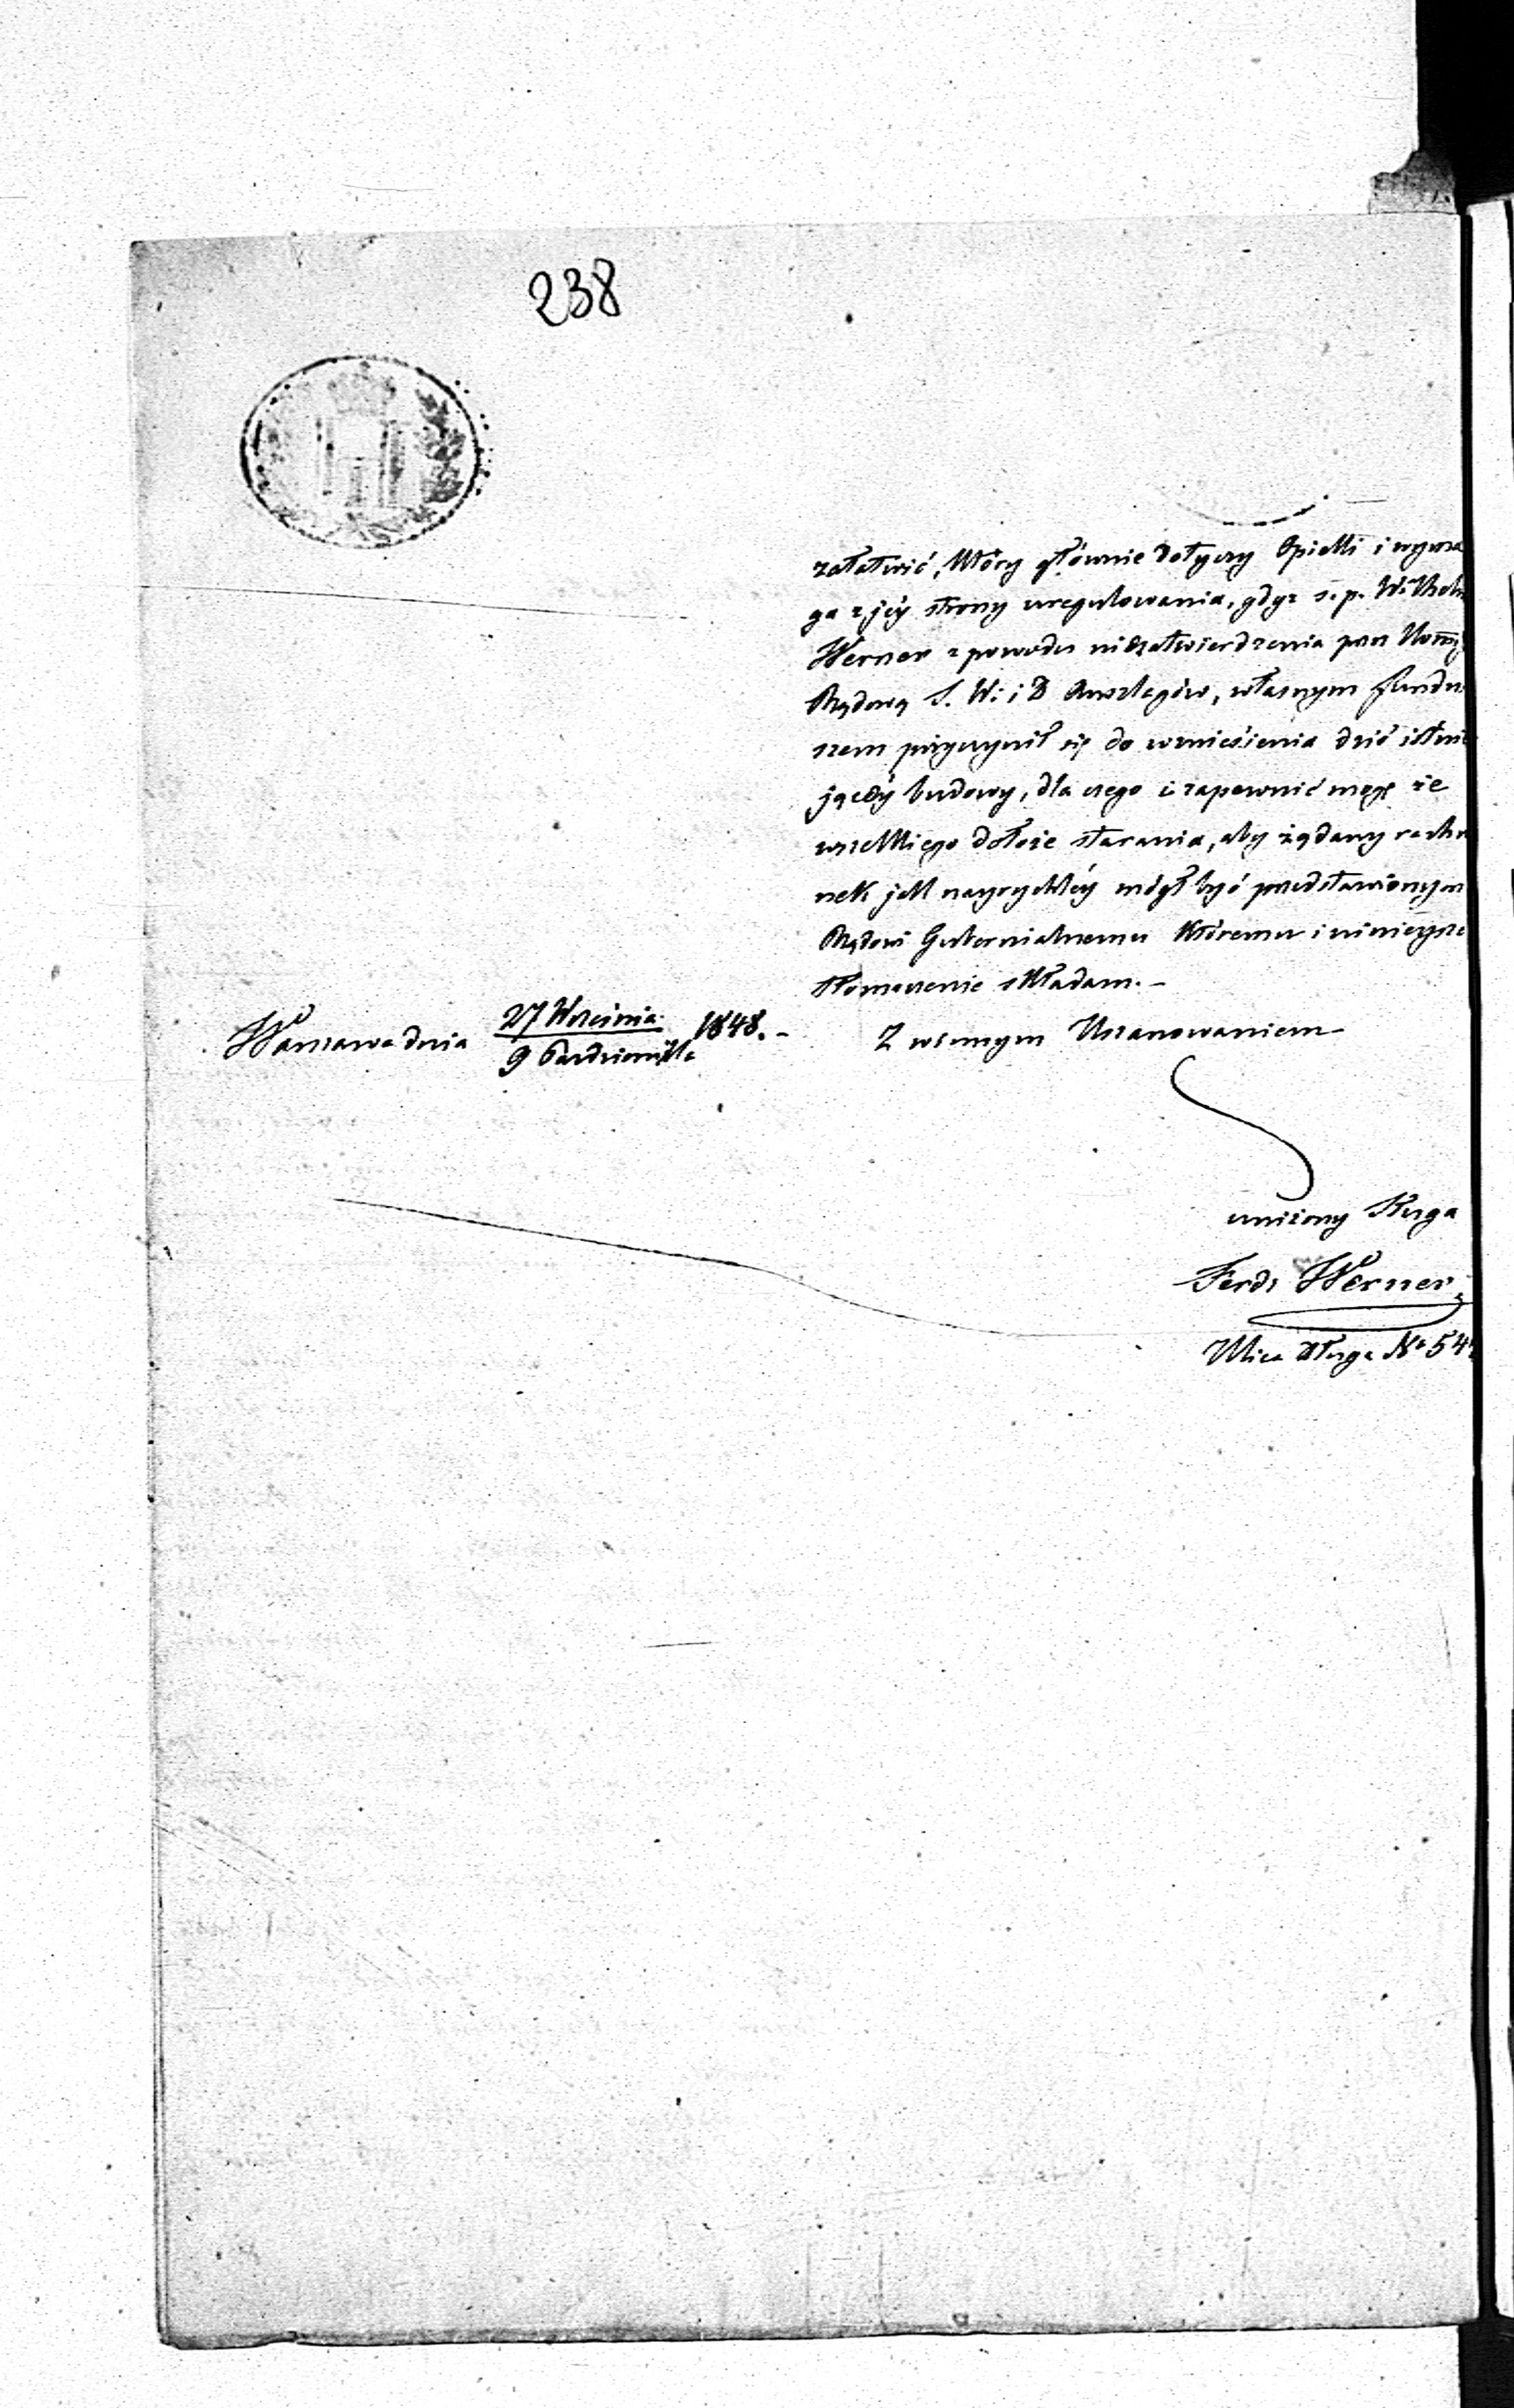 238
załatwić, który głównie dotyczy Opieki i wyma
ga z jéy strony uregulowania, gdyż ś. p. Wilhelm
Werner z powodu niezatwierdzenia przez Kommi
Rządową S. W. i D Anszlagów, własnym fundu
szem przyczynił się do wzniesienia dziś istnie
jącéy budowy, dla czego i zapewnić mogę że
wszelkiego dołożę starania, aby żądany rachu
nek jak nayrychléy mógł być przedstawionym
Rządowi Gubernialnemu któremu i ninieysze
tłomaczenie składam. –
Warszawa dnia 27 Września / 9 Października 1848. –
Z winnym Uszanowaniem
uniżony Sługa
Ferd: Werner
Ulica Długa No 54